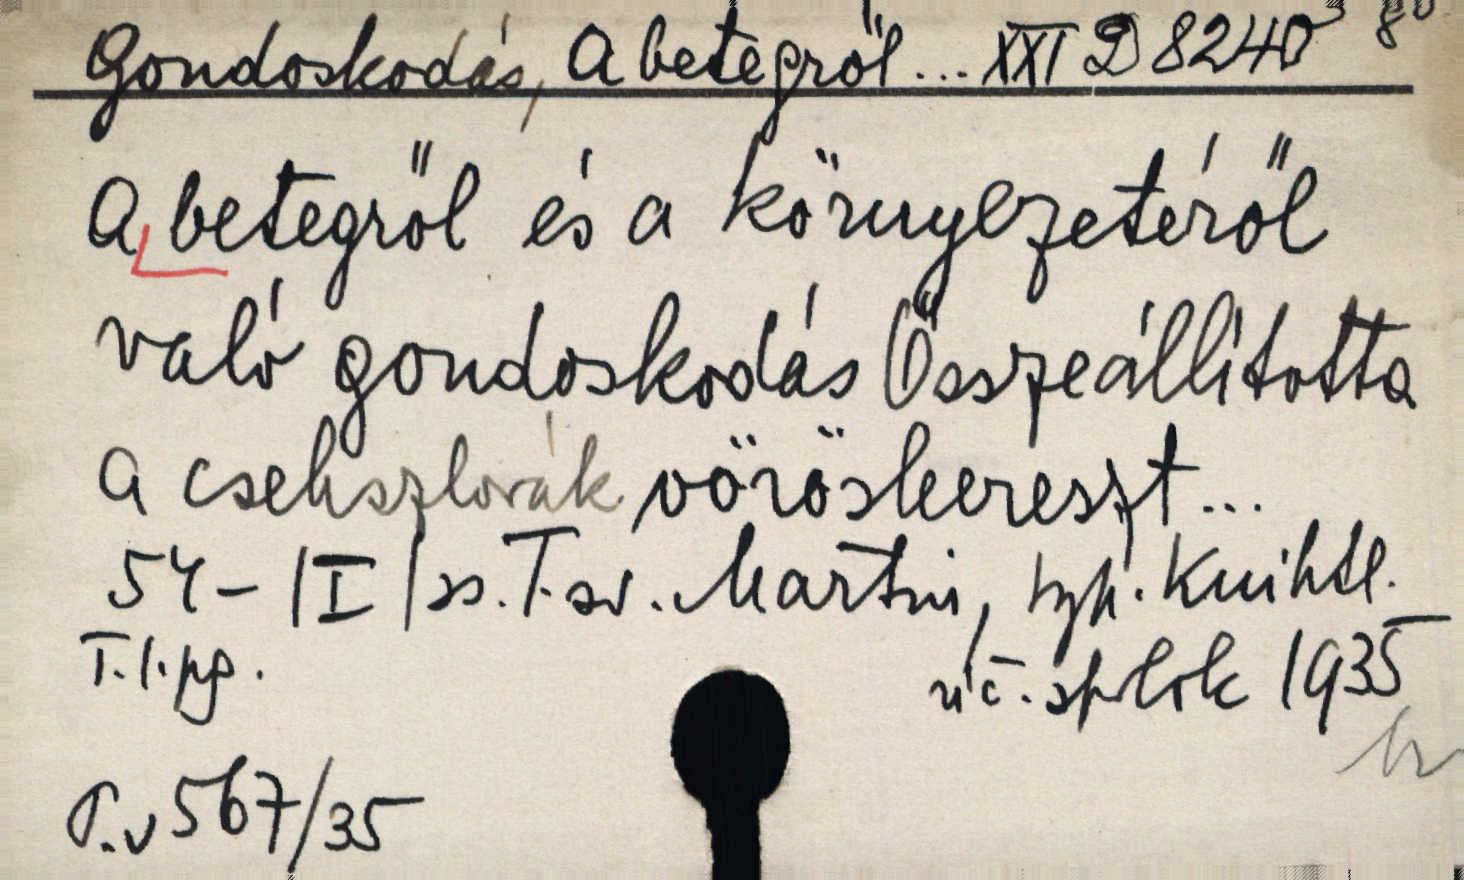 Gondoskodás, A betegről... XXI D 8240 8°
A betegről és a környezetéről
való gondoskodás Összeállította
a csehszlovák vöröskereszt...
54 - |I| ss. T. sv. Martin, typ. Knihtl.
T. l. pg. uč. spolok 1935
P. v 567/35